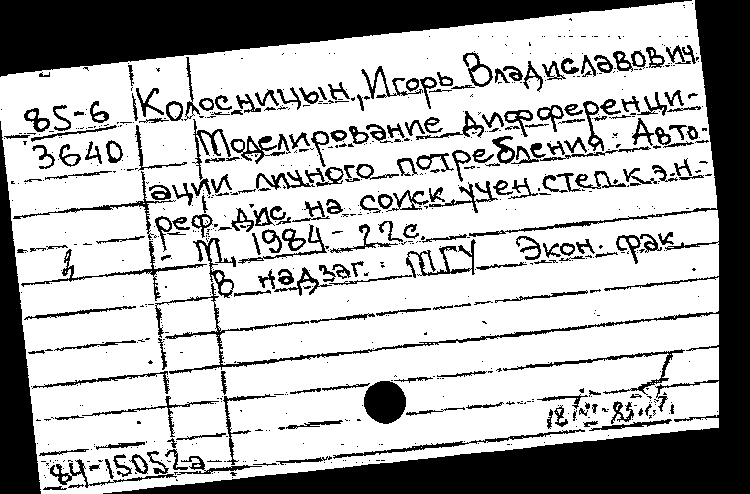 85-6
3640
Колосницын, Игорь Владиславович.
Моделирование дифференци-
ации личного потребления: Авто-
реф. дис. на соиск. учен. степ. к.э.н.-
- М., 1984 - 22 с.
В надзаг.: МГУ Экон. фак.
84-15052а